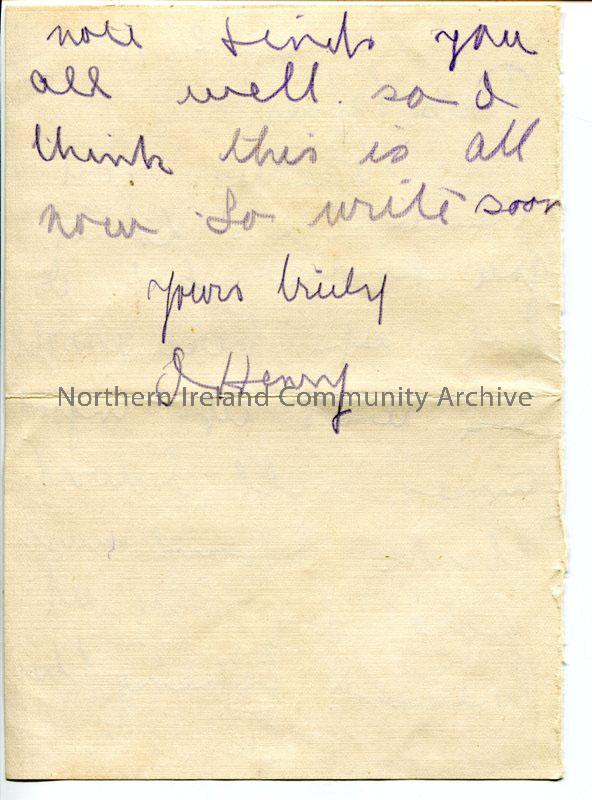 note finds you
all well. so I
think this is all
now So write soon
yours truly
J Henry
Northern Ireland Community Archive